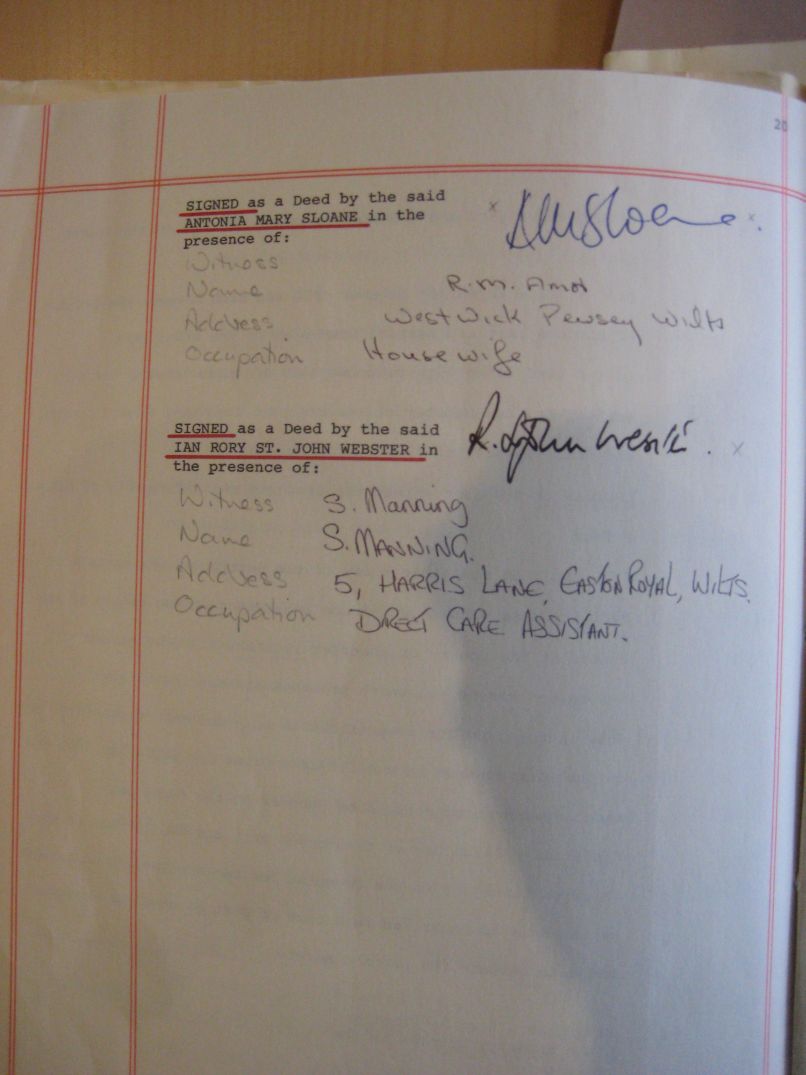 20
SIGNED as a Deed by the said
ANTONIA MARY SLOANE in the
presence of:
x AMSloane x.
Witness
Name R.M. Amor
Address Westwick Pewsey Wilts
Occupation Housewife
SIGNED as a Deed by the said
IAN RORY ST. JOHN WEBSTER in
the presence of:
R. St John x
Witness S. Manning
Name S. MANNING.
Address 5, HARRIS LANE, EASTON ROYAL, WILTS.
Occupation DIRECT CARE ASSISTANT.